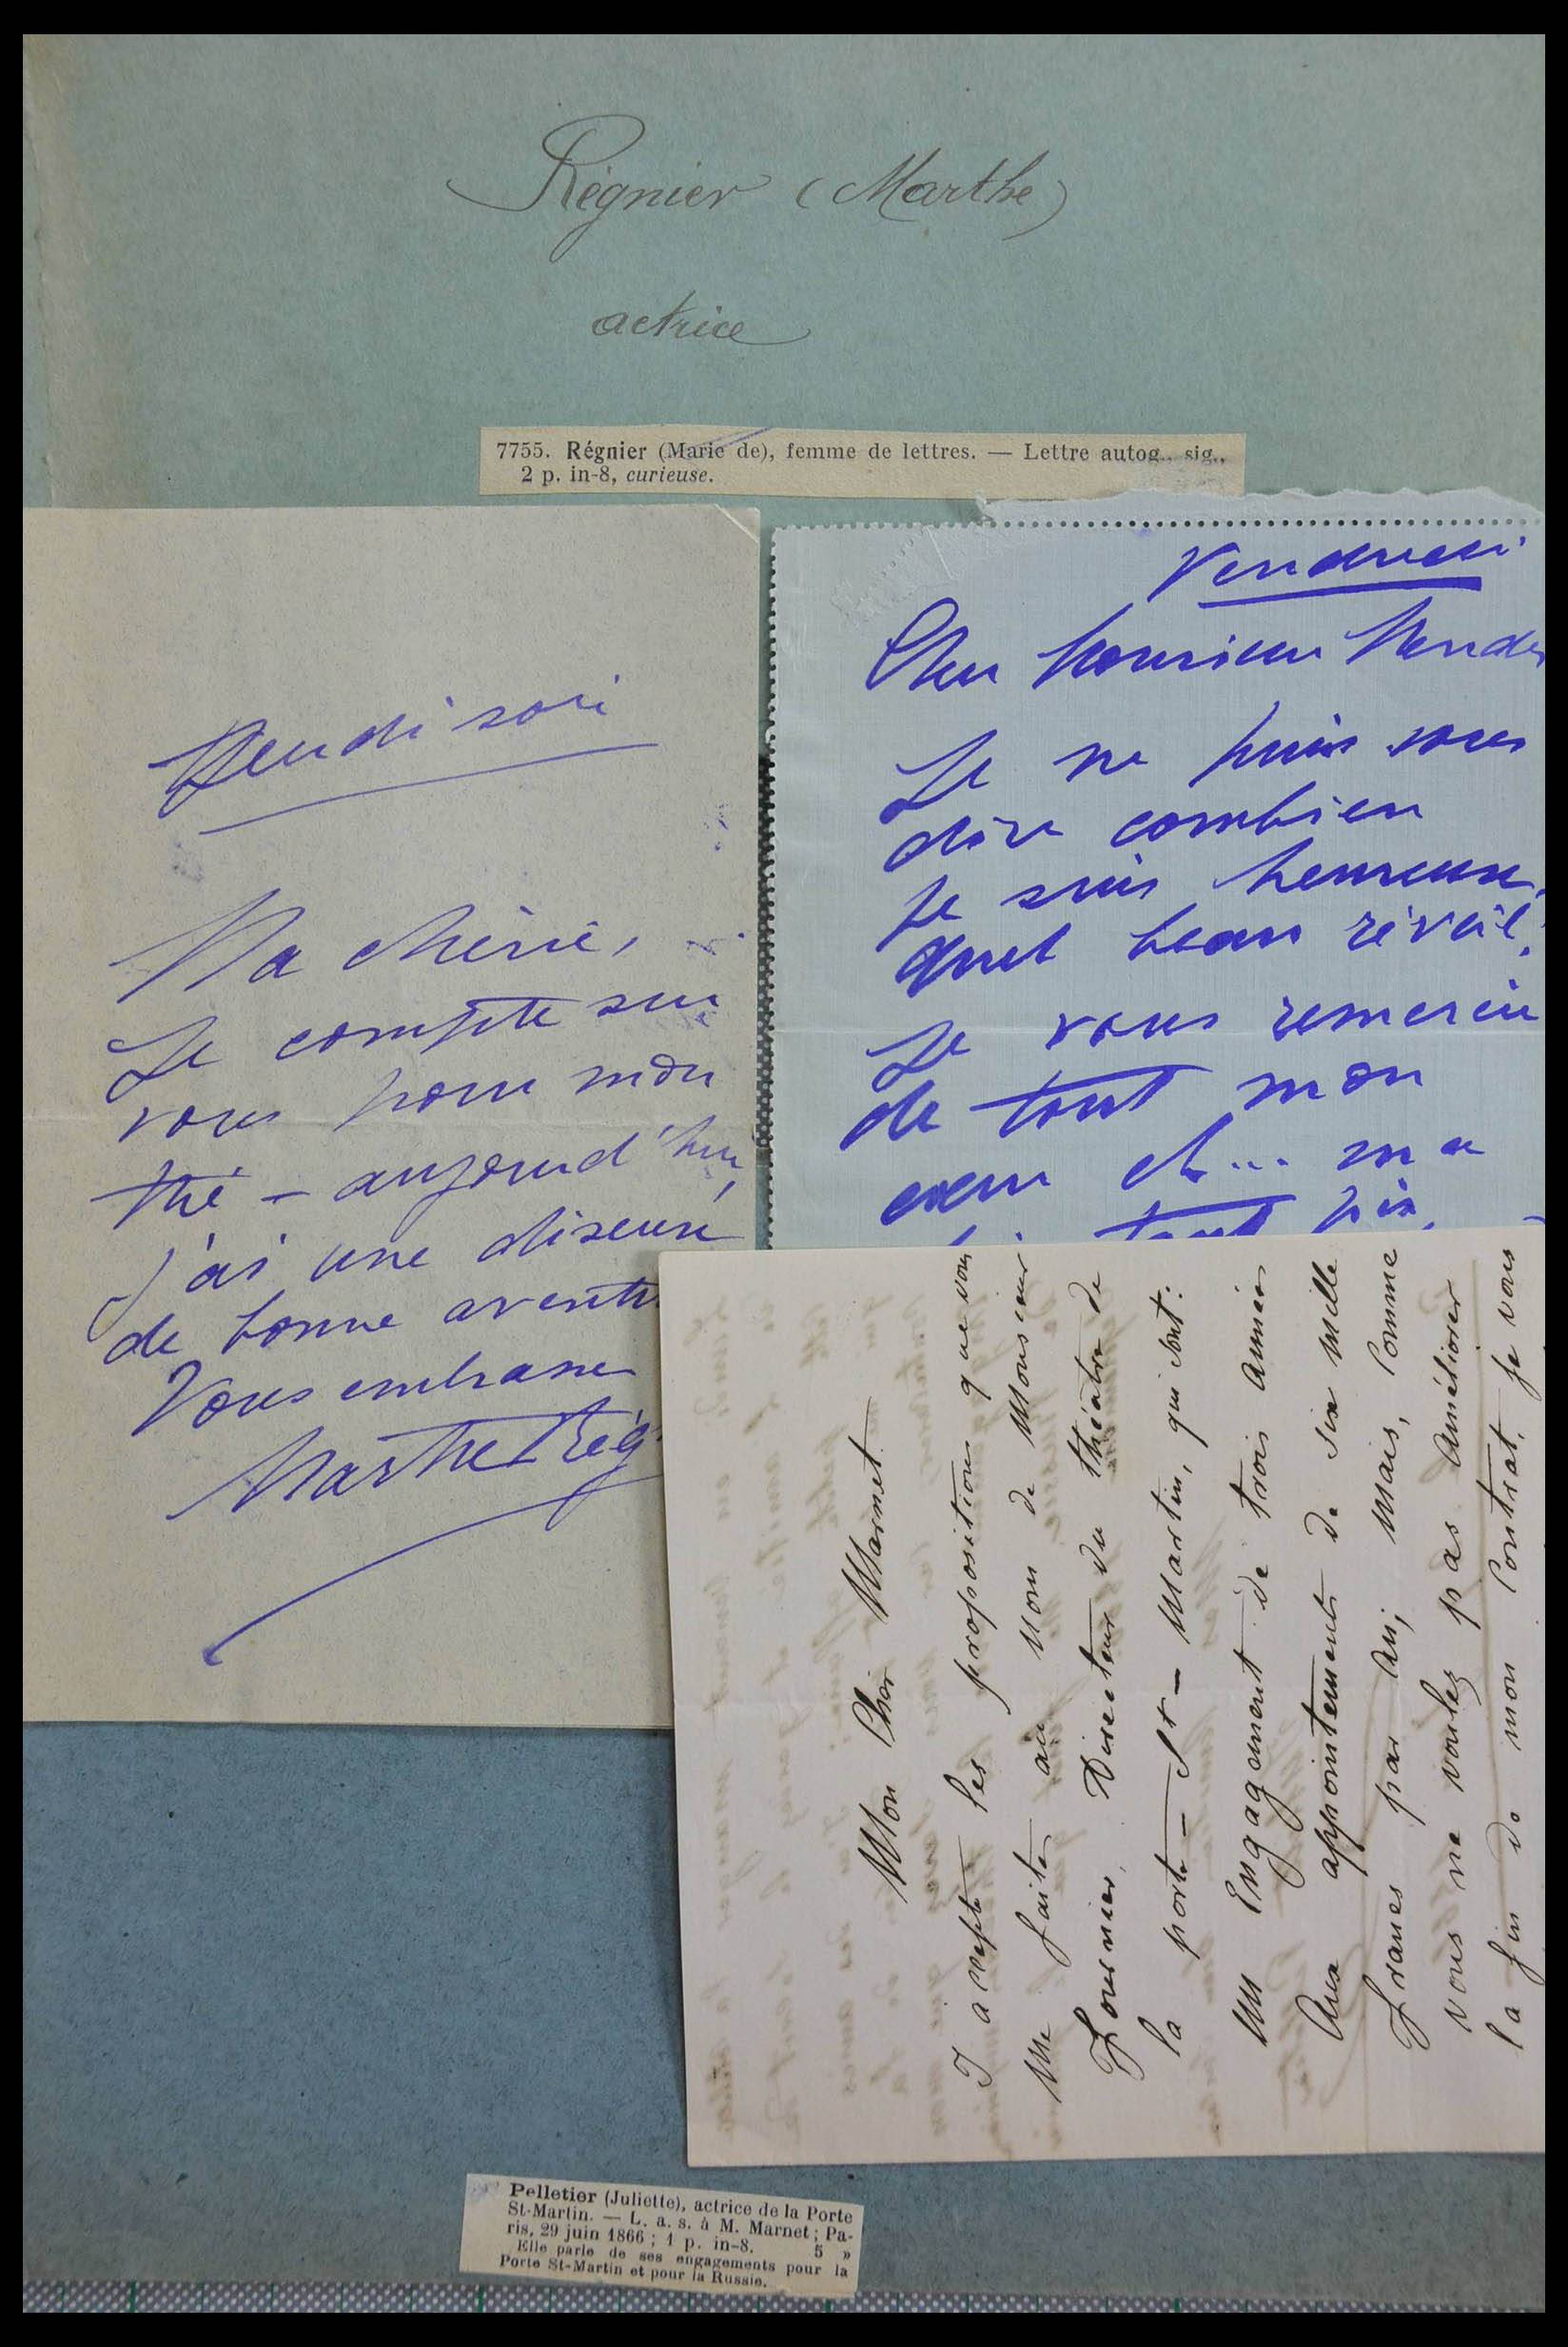 Régnier (Marthe)
actrice
7755. Régnier (Marie de), femme de lettres. — Lettre autog., sig.,
2 p. in-8, curieuse.
Jeudi soir
Ma chérie,
Je compte sur
vous pour mon
thé – aujourd'hui,
j'ai une diseuse
de bonne avent
Vous embrasse
Marthe Rég
Vendredi
Cher Monsieur
Je ne puis vous
dire combien
je suis heureuse,
quel beau réveil!
Je vous remercie
de tout mon
cœur et... ma
tant pis,
Mon Cher Marnet
J'accepte les proposition que vous
me faites au nom de Monsieur
Fournier, Directeur du théâtre de
la porte – St – Martin, qui sont:
un Engagement de trois Années
Aux appointements de six mille
francs par An; mais, Comme
vous ne voulez pas Améliorer
la fin de mon Contrat, je vous
Pelletier (Juliette), actrice de la Porte
St-Martin. — L. a. s. à M. Marnet ; Pa-
ris, 29 juin 1866 ; 1 p. in-8. 5 »
Elle parle de ses engagements pour la
Porte St-Martin et pour la Russie.